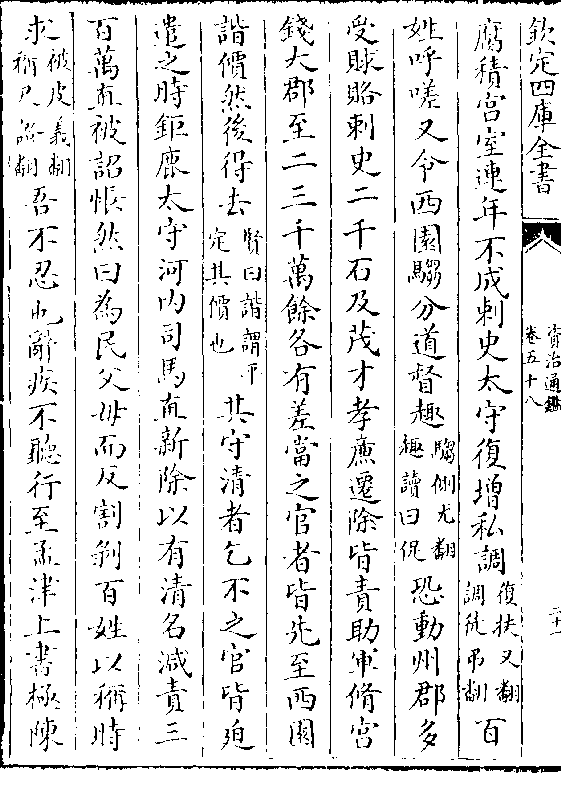 欽定四庫全書
資治通鑑
卷五十八
二十一
腐積宫室連年不成刺史太守復增私調復扶又翻調徒弔翻百
姓呼嗟又令西園騶分道督趣騶側尤翻趣讀曰促恐動州郡多
受賕賂刺史二千石及茂才孝廉遷除皆責助軍脩宫
錢大郡至二三千萬餘各有差當之官者皆先至西園
諧價然後得去賢曰諧謂平定其價也其守清者乞不之官皆迫
遣之時鉅鹿太守河内司馬直新除以有清名減責三
百萬直被詔悵然曰為民父母而反割剝百姓以稱時
求被皮義翻稱尺證翻吾不忍也辭疾不聽行至孟津上書極陳